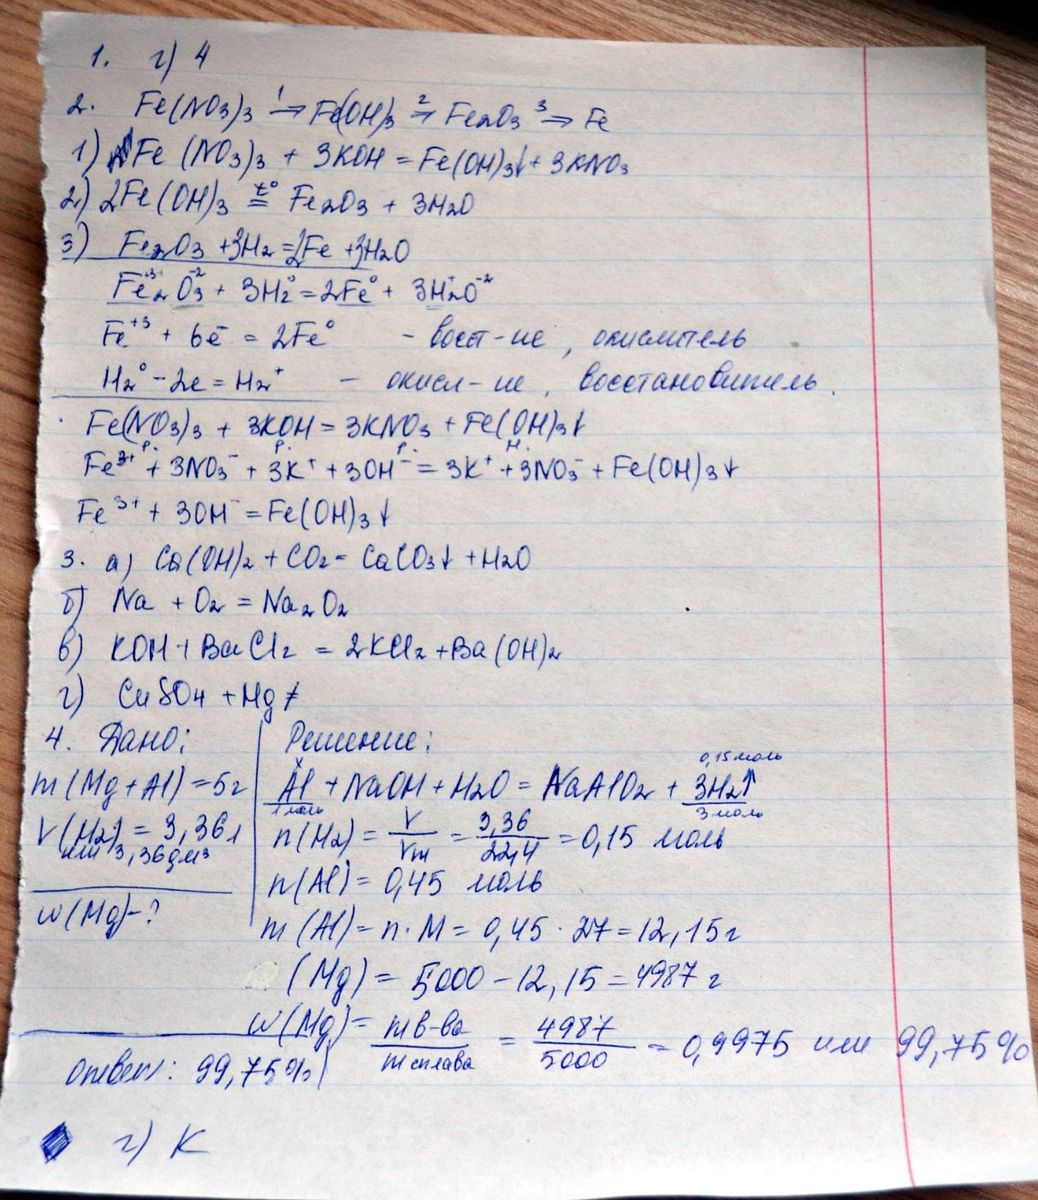 1. г) 4
2. Fe(NO3)3 1→ Fe(OH)3 2→ Fe2O3 3→ Fe
1) Fe (NO3)3 + 3KOH = Fe(OH)3↓ + 3KNO3
2) 2Fe(OH)3 t°= Fe2O3 + 3H2O
3) Fe2O3 + 3H2 = 2Fe + 3H2O
Fe2+3O3-2 + 3H2° = 2Fe° + 3H2+O-2
Fe+3 + 6e- = 2Fe° - восст-ие, окислитель
H2° - 2e = H2+ - окисл-ие, восстановитель.
Fe(NO3)3 + 3KOH = 3KNO3 + Fe(OH)3↓
р. р. р. н.
Fe3+ + 3NO3- + 3K+ + 3OH- = 3K+ + 3NO3- + Fe(OH)3↓
Fe3+ + 3OH- = Fe(OH)3↓
3. а) Ca(OH)2 + CO2 = CaCO3↓ + H2O
б) Na + O2 = Na2O2
в) KOH + BaCl2 = 2KCl2 + Ba(OH)2
г) CuSO4 + Mg ≠
4. Дано: Решение:
x 0,15 моль
m(Mg+Al) = 5г Al + NaOH + H2O = NaAlO2 + 3H2↑
1 моль 3 моль
V(H2) = 3,36л n(H2) = V/Vm = 3,36/22,4 = 0,15 моль
или 3,36дм3
n(Al) = 0,45 моль
w(Mg)-? m(Al) = n·M = 0,45·27 = 12,15г
(Mg) = 5000 - 12,15 = 4987 г
w(Mg) = mв-ва/mсплава = 4987/5000 = 0,9975 или 99,75%
ответ: 99,75%
г) K